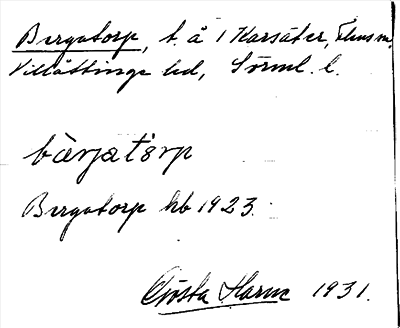 Bergatorp, t. å 1 Karsäter, Flens sn,
Villåttinge hd, Sörml. l.
bærjatårp
Bergatorp hb 1923.
Gösta Harne 1931.